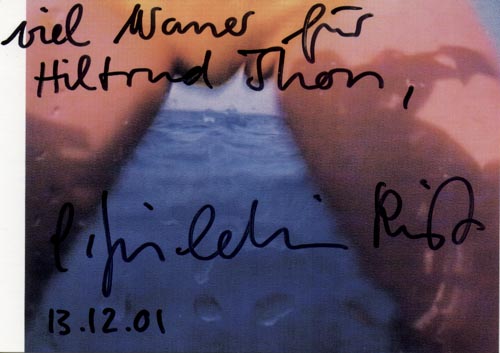 viel Wasser für
Hiltrud Thon,
Pipilotti Rist
13.12.01